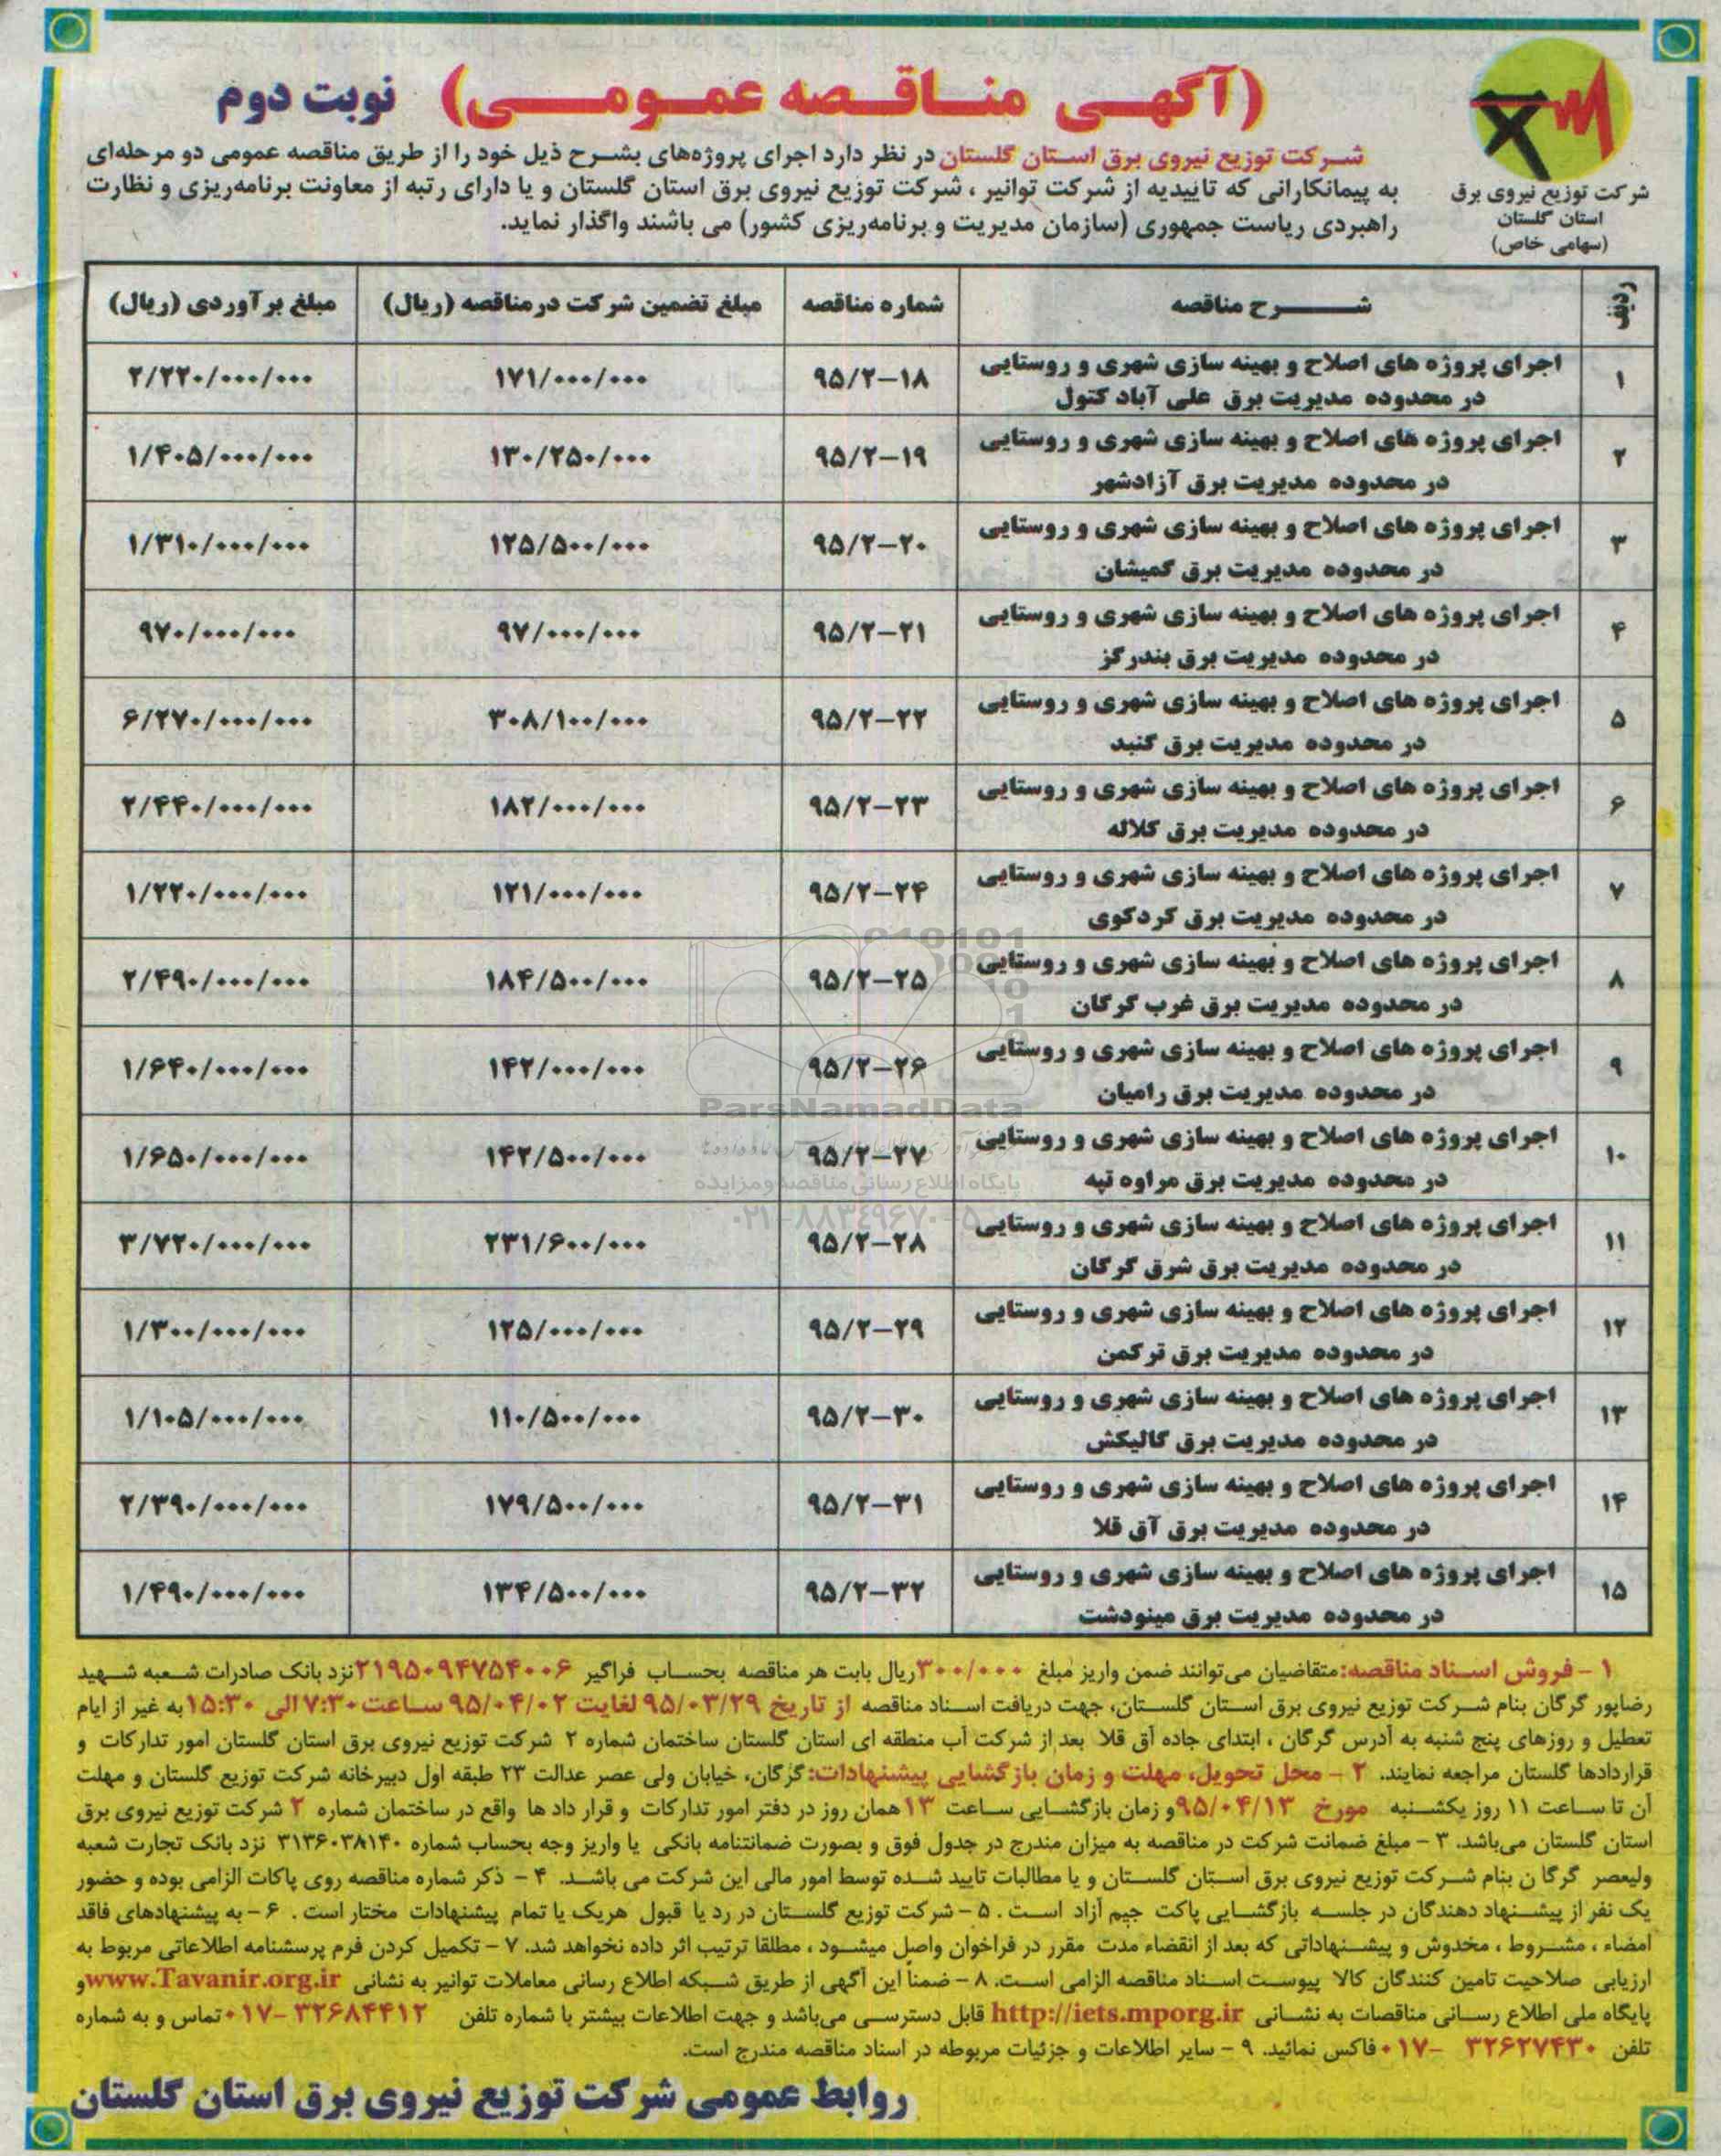 (آگهی مناقصه عمومی) نوبت دوم
شرکت توزیع نیروی برق
استان گلستان
(سهامی خاص)
شرکت توزیع نیروی برق استان گلستان در نظر دارد اجرای پروژه‌های بشرح ذیل خود را از طریق مناقصه عمومی دو مرحله‌ای
به پیمانکارانی که تاییدیه از شرکت توانیر ، شرکت توزیع نیروی برق استان گلستان و یا دارای رتبه از معاونت برنامه‌ریزی و نظارت
راهبردی ریاست جمهوری (سازمان مدیریت و برنامه‌ریزی کشور) می باشند واگذار نماید.
ردیف شرح مناقصه شماره مناقصه مبلغ تضمین شرکت در مناقصه (ریال) مبلغ برآوردی (ریال)
۱ اجرای پروژه های اصلاح و بهینه سازی شهری و روستایی
در محدوده مدیریت برق علی آباد کتول ۹۵/۲-۱۸ ۱۷۱/۰۰۰/۰۰۰ ۲/۲۲۰/۰۰۰/۰۰۰
۲ اجرای پروژه های اصلاح و بهینه سازی شهری و روستایی
در محدوده مدیریت برق آزادشهر ۹۵/۲-۱۹ ۱۳۰/۲۵۰/۰۰۰ ۱/۴۰۵/۰۰۰/۰۰۰
۳ اجرای پروژه های اصلاح و بهینه سازی شهری و روستایی
در محدوده مدیریت برق گمیشان ۹۵/۲-۲۰ ۱۲۵/۵۰۰/۰۰۰ ۱/۳۱۰/۰۰۰/۰۰۰
۴ اجرای پروژه های اصلاح و بهینه سازی شهری و روستایی
در محدوده مدیریت برق بندرگز ۹۵/۲-۲۱ ۹۷/۰۰۰/۰۰۰ ۹۷۰/۰۰۰/۰۰۰
۵ اجرای پروژه های اصلاح و بهینه سازی شهری و روستایی
در محدوده مدیریت برق گنبد ۹۵/۲-۲۲ ۳۰۸/۱۰۰/۰۰۰ ۶/۲۷۰/۰۰۰/۰۰۰
۶ اجرای پروژه های اصلاح و بهینه سازی شهری و روستایی
در محدوده مدیریت برق کلاله ۹۵/۲-۲۳ ۱۸۲/۰۰۰/۰۰۰ ۲/۴۴۰/۰۰۰/۰۰۰
۷ اجرای پروژه های اصلاح و بهینه سازی شهری و روستایی
در محدوده مدیریت برق کردکوی ۹۵/۲-۲۴ ۱۲۱/۰۰۰/۰۰۰ ۱/۲۲۰/۰۰۰/۰۰۰
۸ اجرای پروژه های اصلاح و بهینه سازی شهری و روستایی
در محدوده مدیریت برق غرب گرگان ۹۵/۲-۲۵ ۱۸۴/۵۰۰/۰۰۰ ۲/۴۹۰/۰۰۰/۰۰۰
۹ اجرای پروژه های اصلاح و بهینه سازی شهری و روستایی
در محدوده مدیریت برق رامیان ۹۵/۲-۲۶ ۱۴۲/۰۰۰/۰۰۰ ۱/۶۴۰/۰۰۰/۰۰۰
ParsNamadData
۱۰ اجرای پروژه های اصلاح و بهینه سازی شهری و روستایی
در محدوده مدیریت برق مراوه تپه ۹۵/۲-۲۷ ۱۴۲/۵۰۰/۰۰۰ ۱/۶۵۰/۰۰۰/۰۰۰
پایگاه اطلاع رسانی مناقصه و مزایده
۰۲۱-۸۸۳۴۹۶۷۰-۵
۱۱ اجرای پروژه های اصلاح و بهینه سازی شهری و روستایی
در محدوده مدیریت برق شرق گرگان ۹۵/۲-۲۸ ۲۳۱/۶۰۰/۰۰۰ ۳/۷۲۰/۰۰۰/۰۰۰
۱۲ اجرای پروژه های اصلاح و بهینه سازی شهری و روستایی
در محدوده مدیریت برق ترکمن ۹۵/۲-۲۹ ۱۲۵/۰۰۰/۰۰۰ ۱/۳۰۰/۰۰۰/۰۰۰
۱۳ اجرای پروژه های اصلاح و بهینه سازی شهری و روستایی
در محدوده مدیریت برق گالیکش ۹۵/۲-۳۰ ۱۱۰/۵۰۰/۰۰۰ ۱/۱۰۵/۰۰۰/۰۰۰
۱۴ اجرای پروژه های اصلاح و بهینه سازی شهری و روستایی
در محدوده مدیریت برق آق قلا ۹۵/۲-۳۱ ۱۷۹/۵۰۰/۰۰۰ ۲/۳۹۰/۰۰۰/۰۰۰
۱۵ اجرای پروژه های اصلاح و بهینه سازی شهری و روستایی
در محدوده مدیریت برق مینودشت ۹۵/۲-۳۲ ۱۳۴/۵۰۰/۰۰۰ ۱/۴۹۰/۰۰۰/۰۰۰
۱ - فروش اسناد مناقصه: متقاضیان می‌توانند ضمن واریز مبلغ ۳۰۰/۰۰۰ ریال بابت هر مناقصه بحساب فراگیر ۲۱۹۵۰۹۴۷۵۴۰۰۶ نزد بانک صادرات شعبه شهید
رضاپور گرگان بنام شرکت توزیع نیروی برق استان گلستان، جهت دریافت اسناد مناقصه از تاریخ ۹۵/۰۳/۲۹ لغایت ۹۵/۰۴/۰۲ ساعت ۷:۳۰ الی ۱۵:۳۰ به غیر از ایام
تعطیل و روزهای پنج شنبه به آدرس گرگان ، ابتدای جاده آق قلا بعد از شرکت آب منطقه ای استان گلستان ساختمان شماره ۲ شرکت توزیع نیروی برق استان گلستان امور تدارکات و
قراردادها گلستان مراجعه نمایند. ۲ - محل تحویل، مهلت و زمان بازگشایی پیشنهادات: گرگان، خیابان ولی عصر عدالت ۲۳ طبقه اول دبیرخانه شرکت توزیع گلستان و مهلت
آن تا ساعت ۱۱ روز یکشنبه مورخ ۹۵/۰۴/۱۳ و زمان بازگشایی ساعت ۱۳ همان روز در دفتر امور تدارکات و قرار داد ها واقع در ساختمان شماره ۲ شرکت توزیع نیروی برق
استان گلستان می‌باشد. ۳ - مبلغ ضمانت شرکت در مناقصه به میزان مندرج در جدول فوق و بصورت ضمانتنامه بانکی یا واریز وجه بحساب شماره ۳۱۳۶۰۳۸۱۴۰ نزد بانک تجارت شعبه
ولیعصر گرگا ن بنام شرکت توزیع نیروی برق استان گلستان و یا مطالبات تایید شده توسط امور مالی این شرکت می باشد. ۴ - ذکر شماره مناقصه روی پاکات الزامی بوده و حضور
یک نفر از پیشنهاد دهندگان در جلسه بازگشایی پاکت جیم آزاد است . ۵ - شرکت توزیع گلستان در رد یا قبول هریک یا تمام پیشنهادات مختار است . ۶ - به پیشنهادهای فاقد
امضاء ، مشروط ، مخدوش و پیشنهاداتی که بعد از انقضاء مدت مقرر در فراخوان واصل میشود ، مطلقا ترتیب اثر داده نخواهد شد. ۷ - تکمیل کردن فرم پرسشنامه اطلاعاتی مربوط به
ارزیابی صلاحیت تامین کنندگان کالا پیوست اسناد مناقصه الزامی است. ۸ - ضمناً این آگهی از طریق شبکه اطلاع رسانی معاملات توانیر به نشانی www.Tavanir.org.ir و
پایگاه ملی اطلاع رسانی مناقصات به نشانی http://iets.mporg.ir قابل دسترسی می‌باشد و جهت اطلاعات بیشتر با شماره تلفن ۳۲۶۸۴۴۱۲ -۰۱۷ تماس و به شماره
تلفن ۳۲۶۲۷۴۳۰ -۰۱۷ فاکس نمائید. ۹ - سایر اطلاعات و جزئیات مربوطه در اسناد مناقصه مندرج است.
روابط عمومی شرکت توزیع نیروی برق استان گلستان